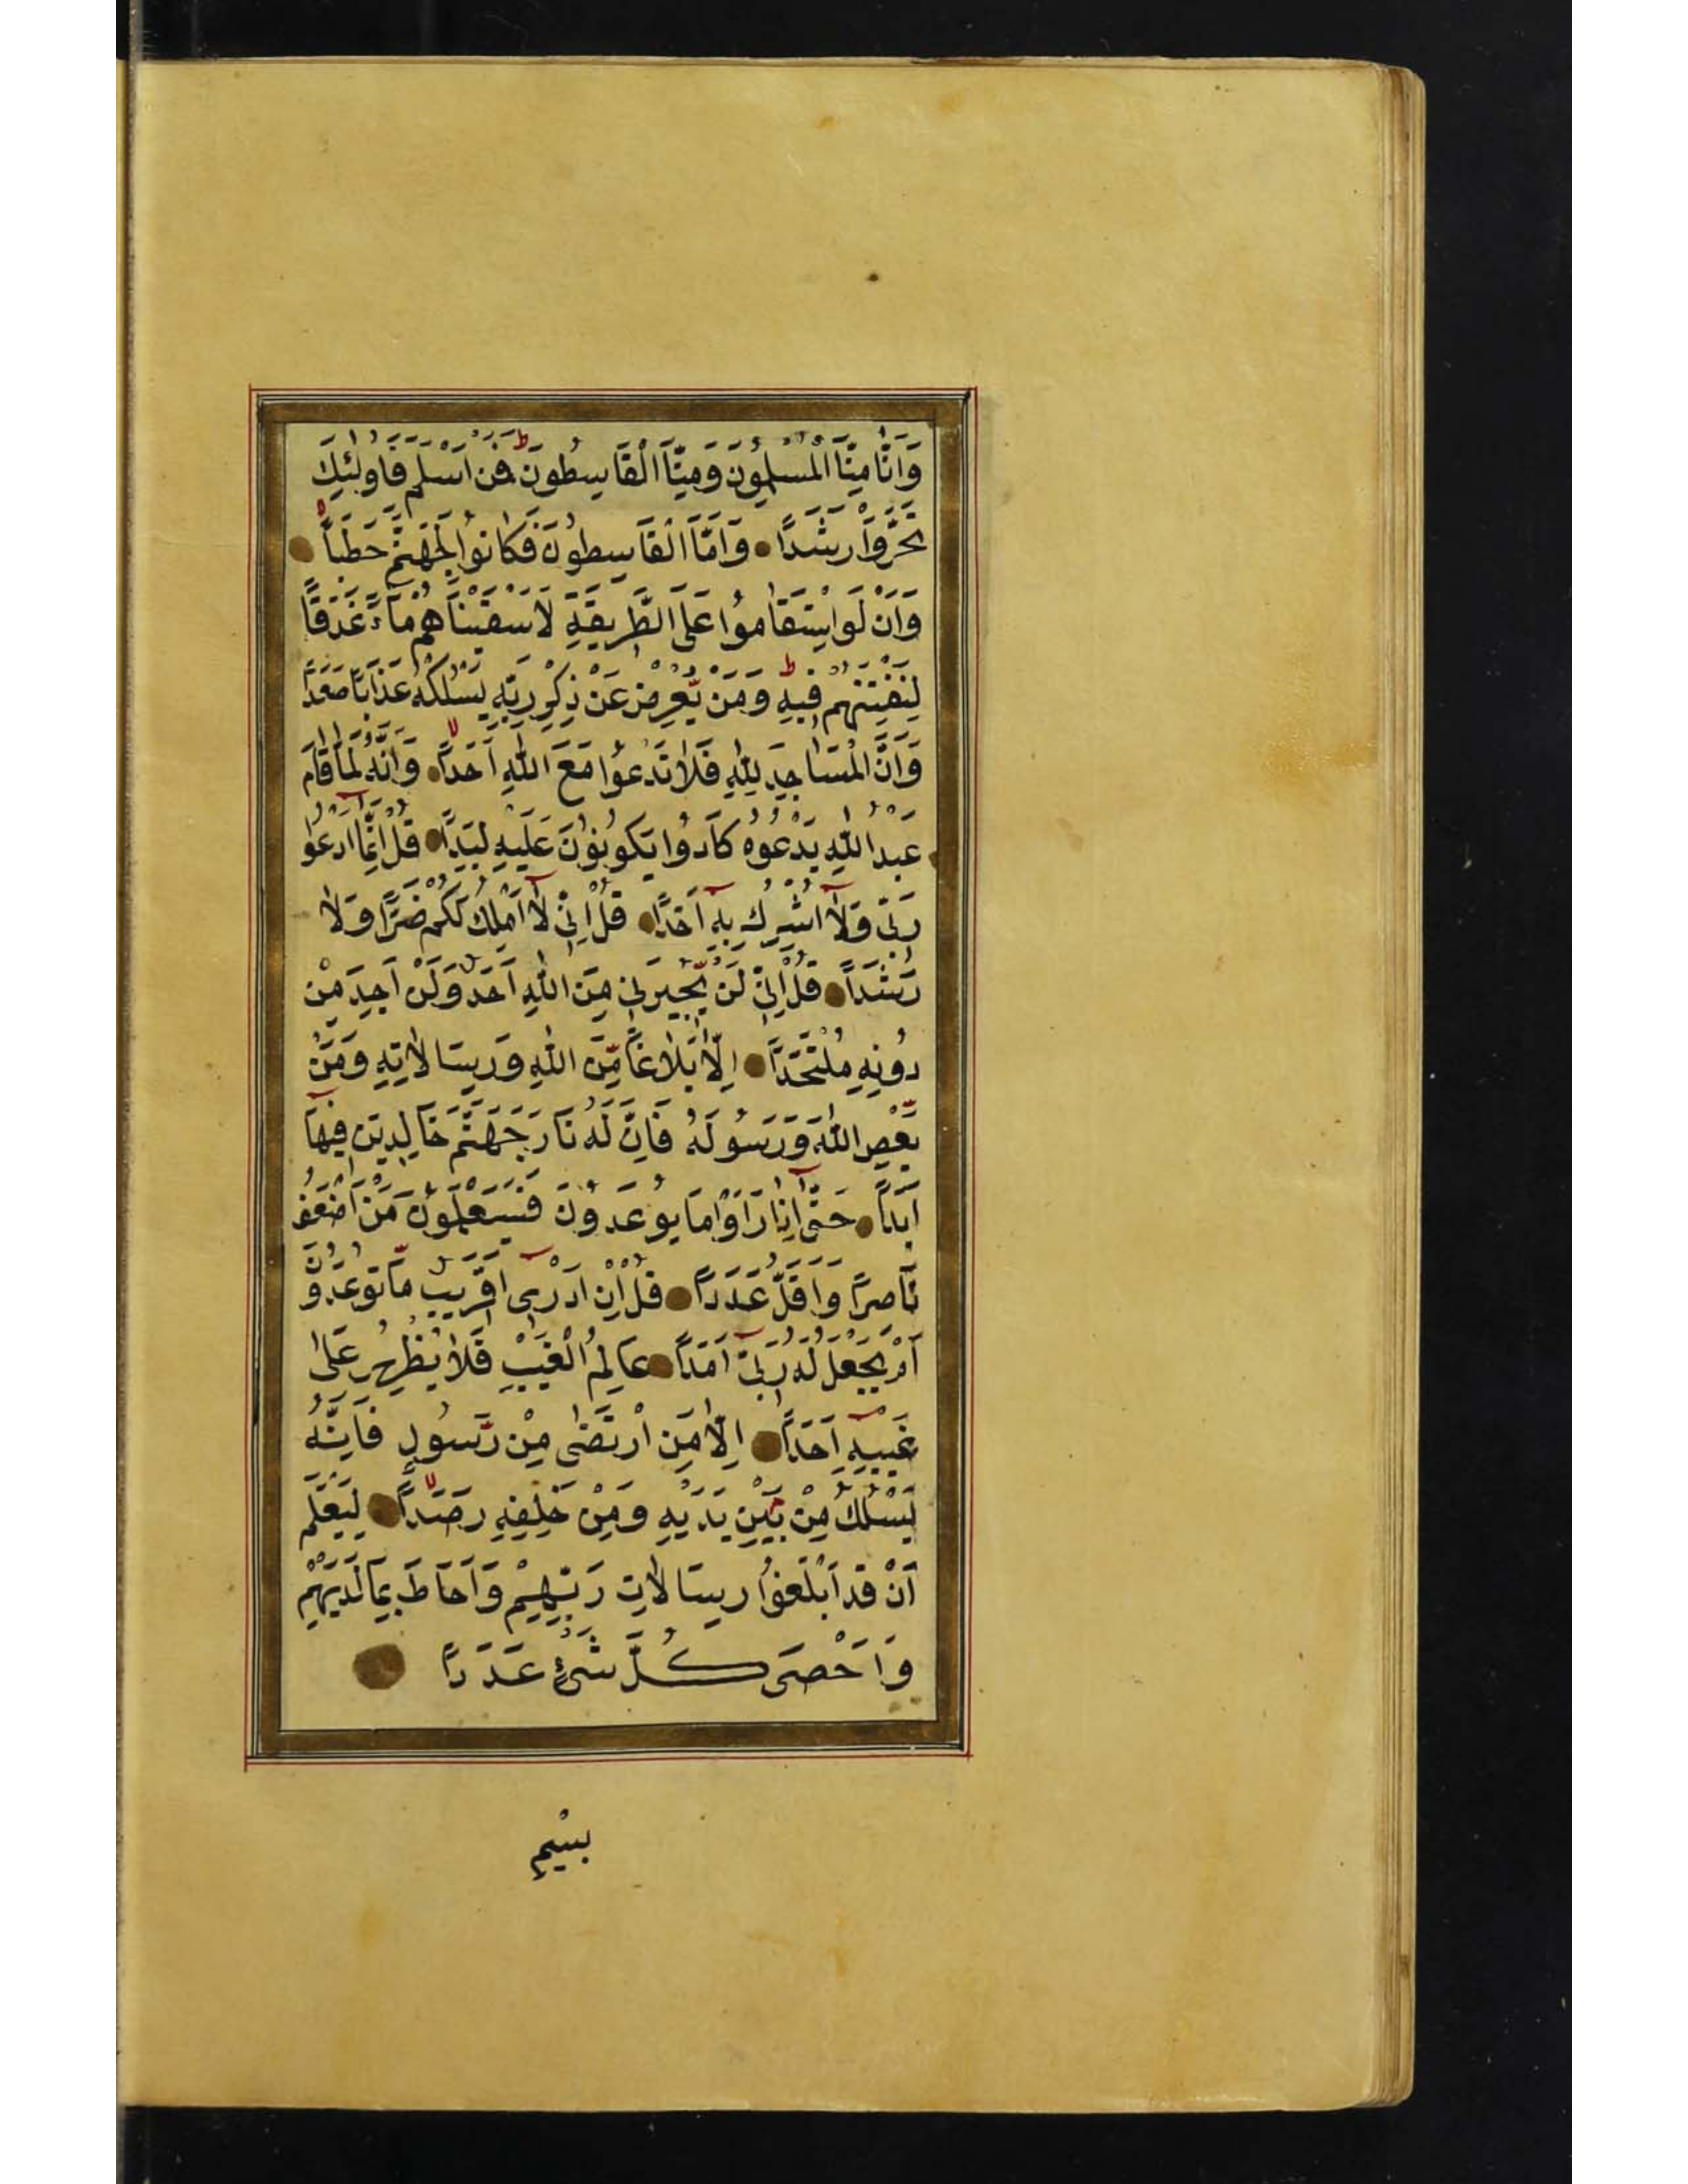 وَاَنَّا مِنَّا الْمُسْلِمُونَ وَمِنَّا الْقَاسِطُونَ ط فَمَنْ اَسْلَمَ فَاُولٰئِكَ
تَحَرَّوْا رَشَدًا وَاَمَّا الْقَاسِطُونَ فَكَانُوا لِجَهَنَّمَ حَطَبًا
وَاَنْ لَوِ اسْتَقَامُوا عَلَى الطَّرِيقَةِ لَاَسْقَيْنَاهُمْ مَاءً غَدَقًا
لِنَفْتِنَهُمْ فِيهِ ط وَمَنْ يُعْرِضْ عَنْ ذِكْرِ رَبِّهِ يَسْلُكْهُ عَذَابًا صَعَدًا
وَاَنَّ الْمَسَاجِدَ لِلّٰهِ فَلَا تَدْعُوا مَعَ اللّٰهِ اَحَدًا لا وَاَنَّهُ لَمَّا قَامَ
عَبْدُ اللّٰهِ يَدْعُوهُ كَادُوا يَكُونُونَ عَلَيْهِ لِبَدًا قُلْ اِنَّمَا اَدْعُوا
رَبِّي وَلَا اُشْرِكُ بِهِ اَحَدًا قُلْ اِنِّي لَا اَمْلِكُ لَكُمْ ضَرًّا وَلَا
رَشَدًا قُلْ اِنِّي لَنْ يُجِيرَنِي مِنَ اللّٰهِ اَحَدٌ وَلَنْ اَجِدَ مِنْ
دُونِهِ مُلْتَحَدًا اِلَّا بَلَاغًا مِنَ اللّٰهِ وَرِسَالَاتِهِ وَمَنْ
يَعْصِ اللّٰهَ وَرَسُولَهُ فَاِنَّ لَهُ نَارَ جَهَنَّمَ خَالِدِينَ فِيهَا
اَبَدًا حَتّٰى اِذَا رَاَوْا مَا يُوعَدُونَ فَسَيَعْلَمُونَ مَنْ اَضْعَفُ
نَاصِرًا وَاَقَلُّ عَدَدًا قُلْ اِنْ اَدْرِى اَقَرِيبٌ مَا تُوعَدُونَ
اَمْ يَجْعَلُ لَهُ رَبِّي اَمَدًا عَالِمُ الْغَيْبِ فَلَا يُظْهِرُ عَلٰى
غَيْبِهِ اَحَدًا اِلَّا مَنِ ارْتَضٰى مِنْ رَسُولٍ فَاِنَّهُ
يَسْلُكُ مِنْ بَيْنِ يَدَيْهِ وَمِنْ خَلْفِهِ رَصَدًا لا لِيَعْلَمَ
اَنْ قَدْ اَبْلَغُوا رِسَالَاتِ رَبِّهِمْ وَاَحَاطَ بِمَا لَدَيْهِمْ
وَاَحْصَى كُلَّ شَيْءٍ عَدَدًا
بِسْمِ